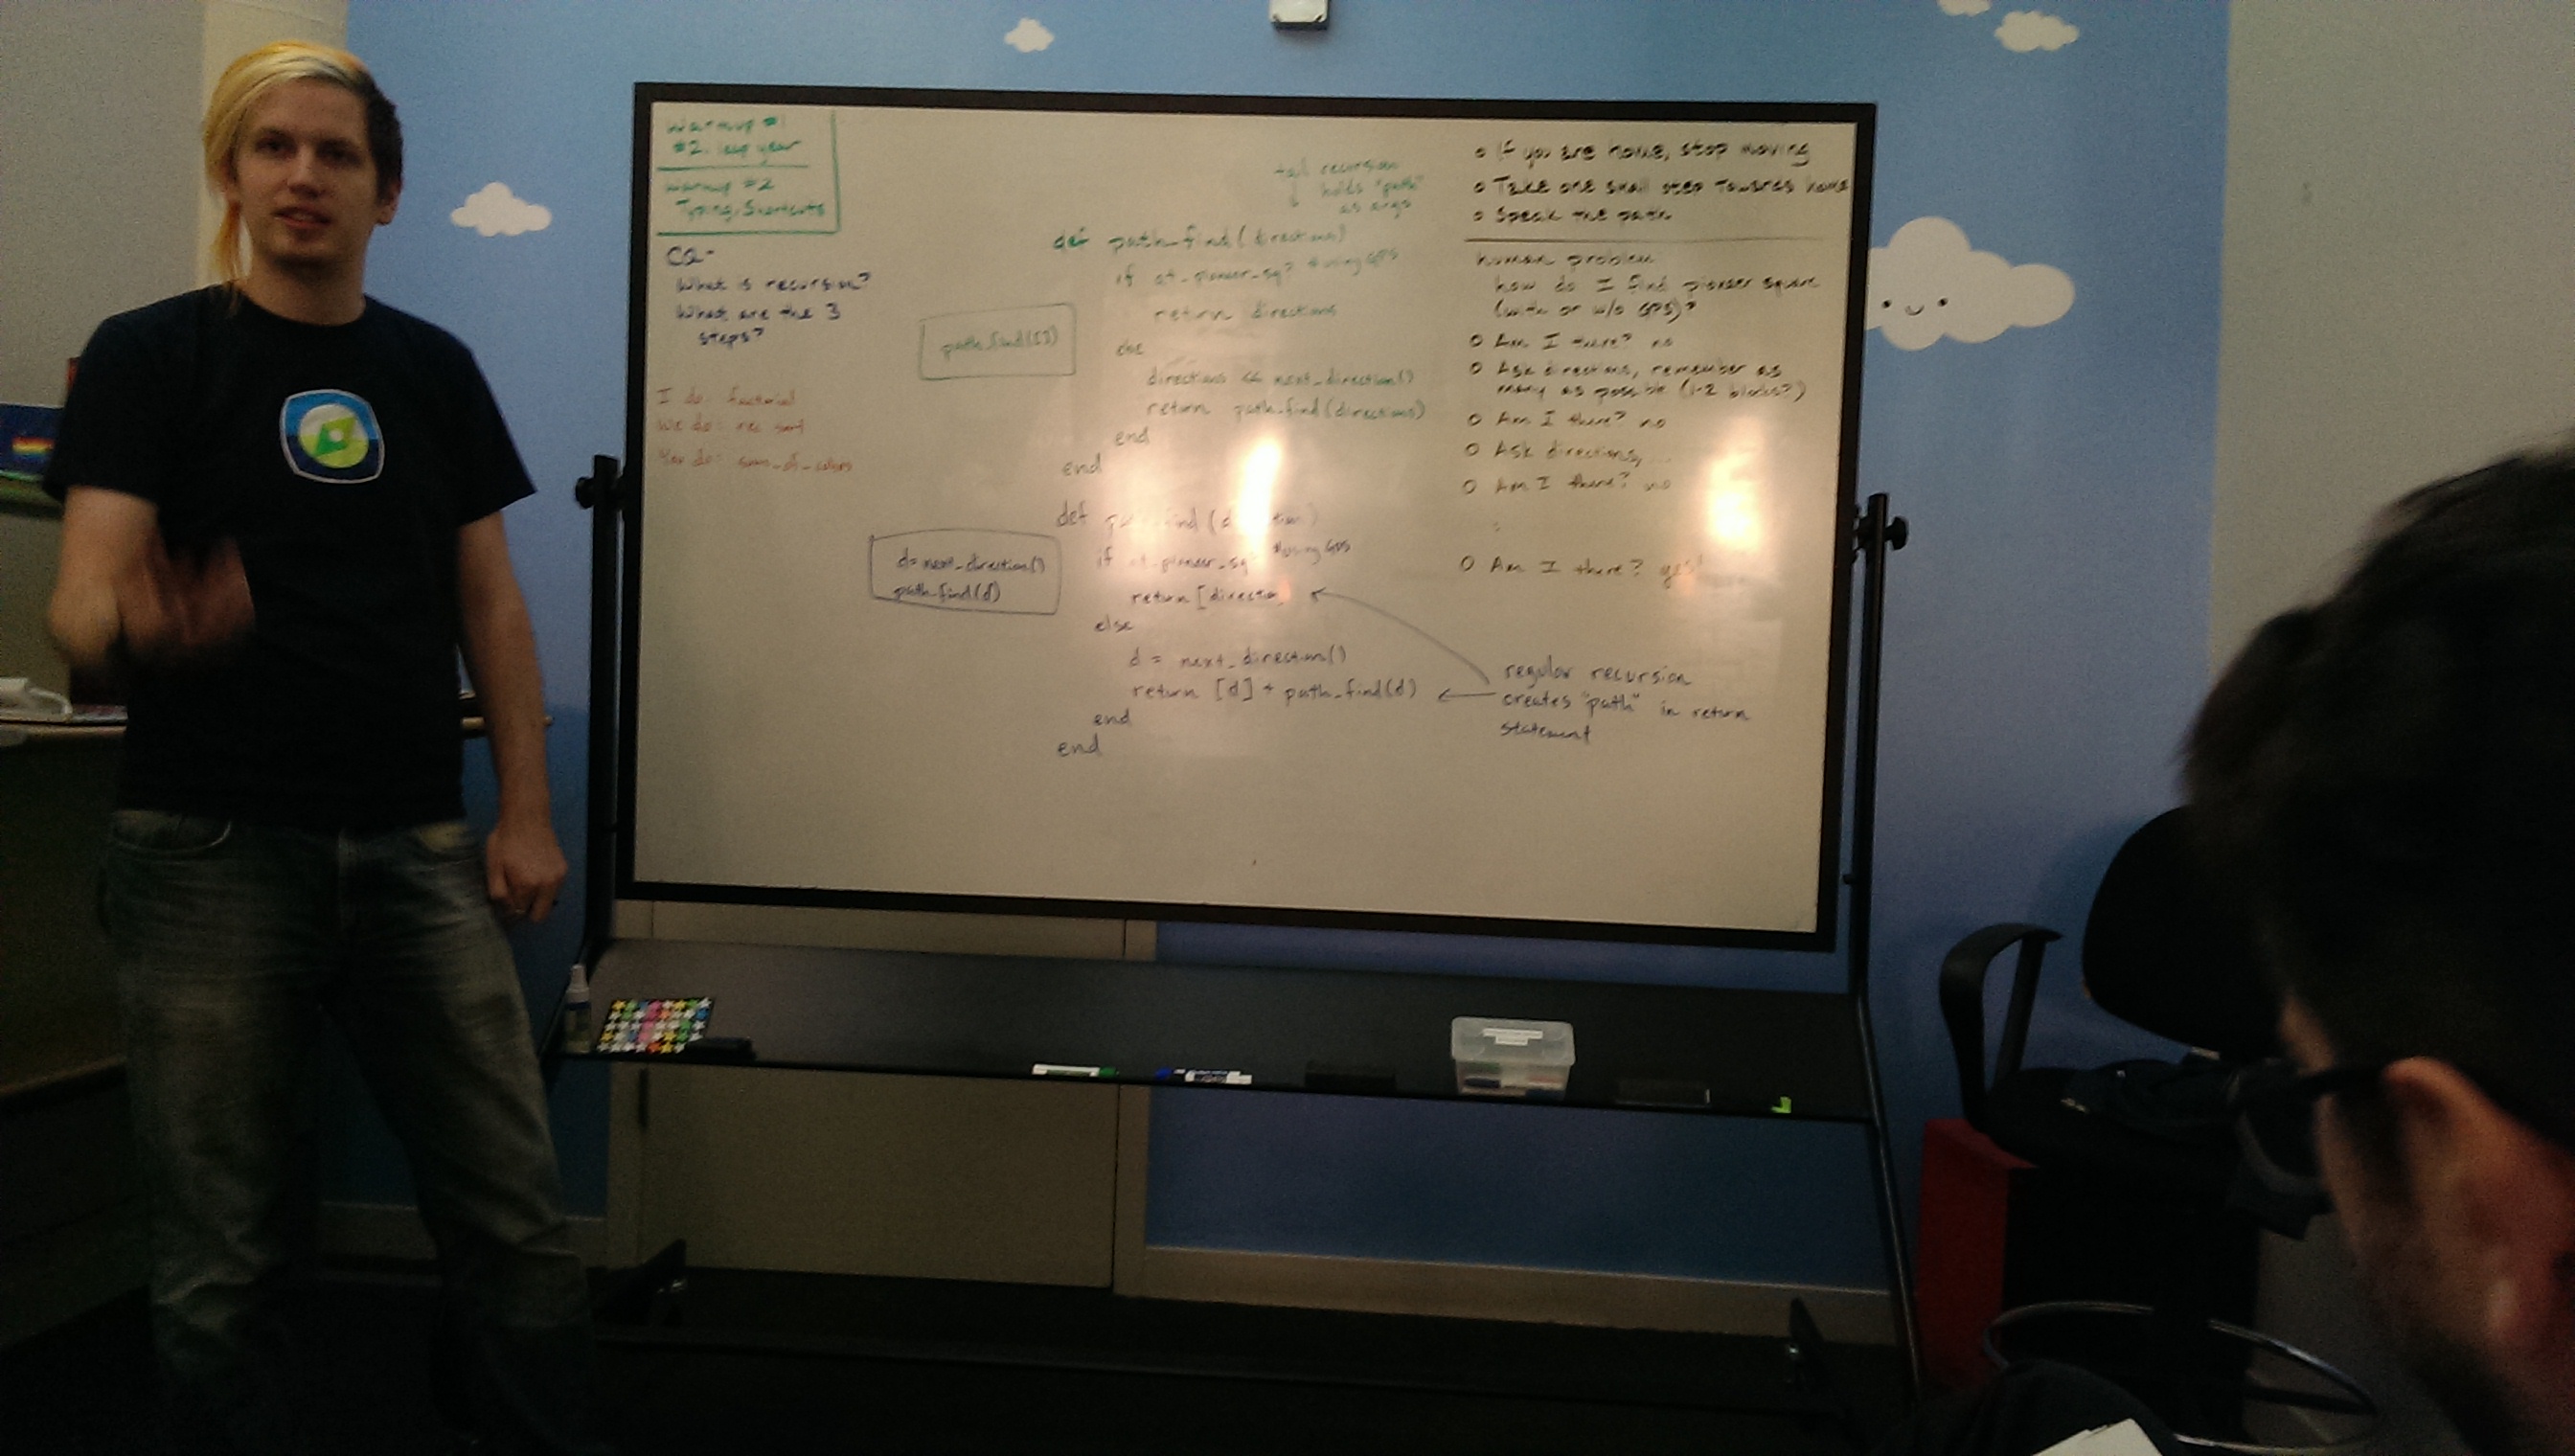 Warmup #1
#2. leap year
Warmup #2
Typing.Shortcuts
CQ-
What is recursion?
What are the 3
steps?
I do: factorial
We do: rec sort
You do: sum_of_cubes
tail recursion
holds "path"
as args
def path_find(directions)
if at_pioneer_sq? #using GPS
return directions
else
directions << next_direction()
return path_find(directions)
end
end
path_find([])
def find (
if at_pioneer_sq #using GPS
return [direction
else
d = next_direction()
return [d] + path_find(d)
end
end
d=next_direction()
path_find(d)
regular recursion
creates "path" in return
statement
o If you are home, stop moving
o Take one small step towards home
o Speak the path
human problem
how do I find pioneer square
(with or w/o GPS)?
o Am I there? no
o Ask directions, remember as
many as possible (1-2 blocks?)
o Am I there? no
o Ask directions, ...
o Am I there? no
:
o Am I there? yes!